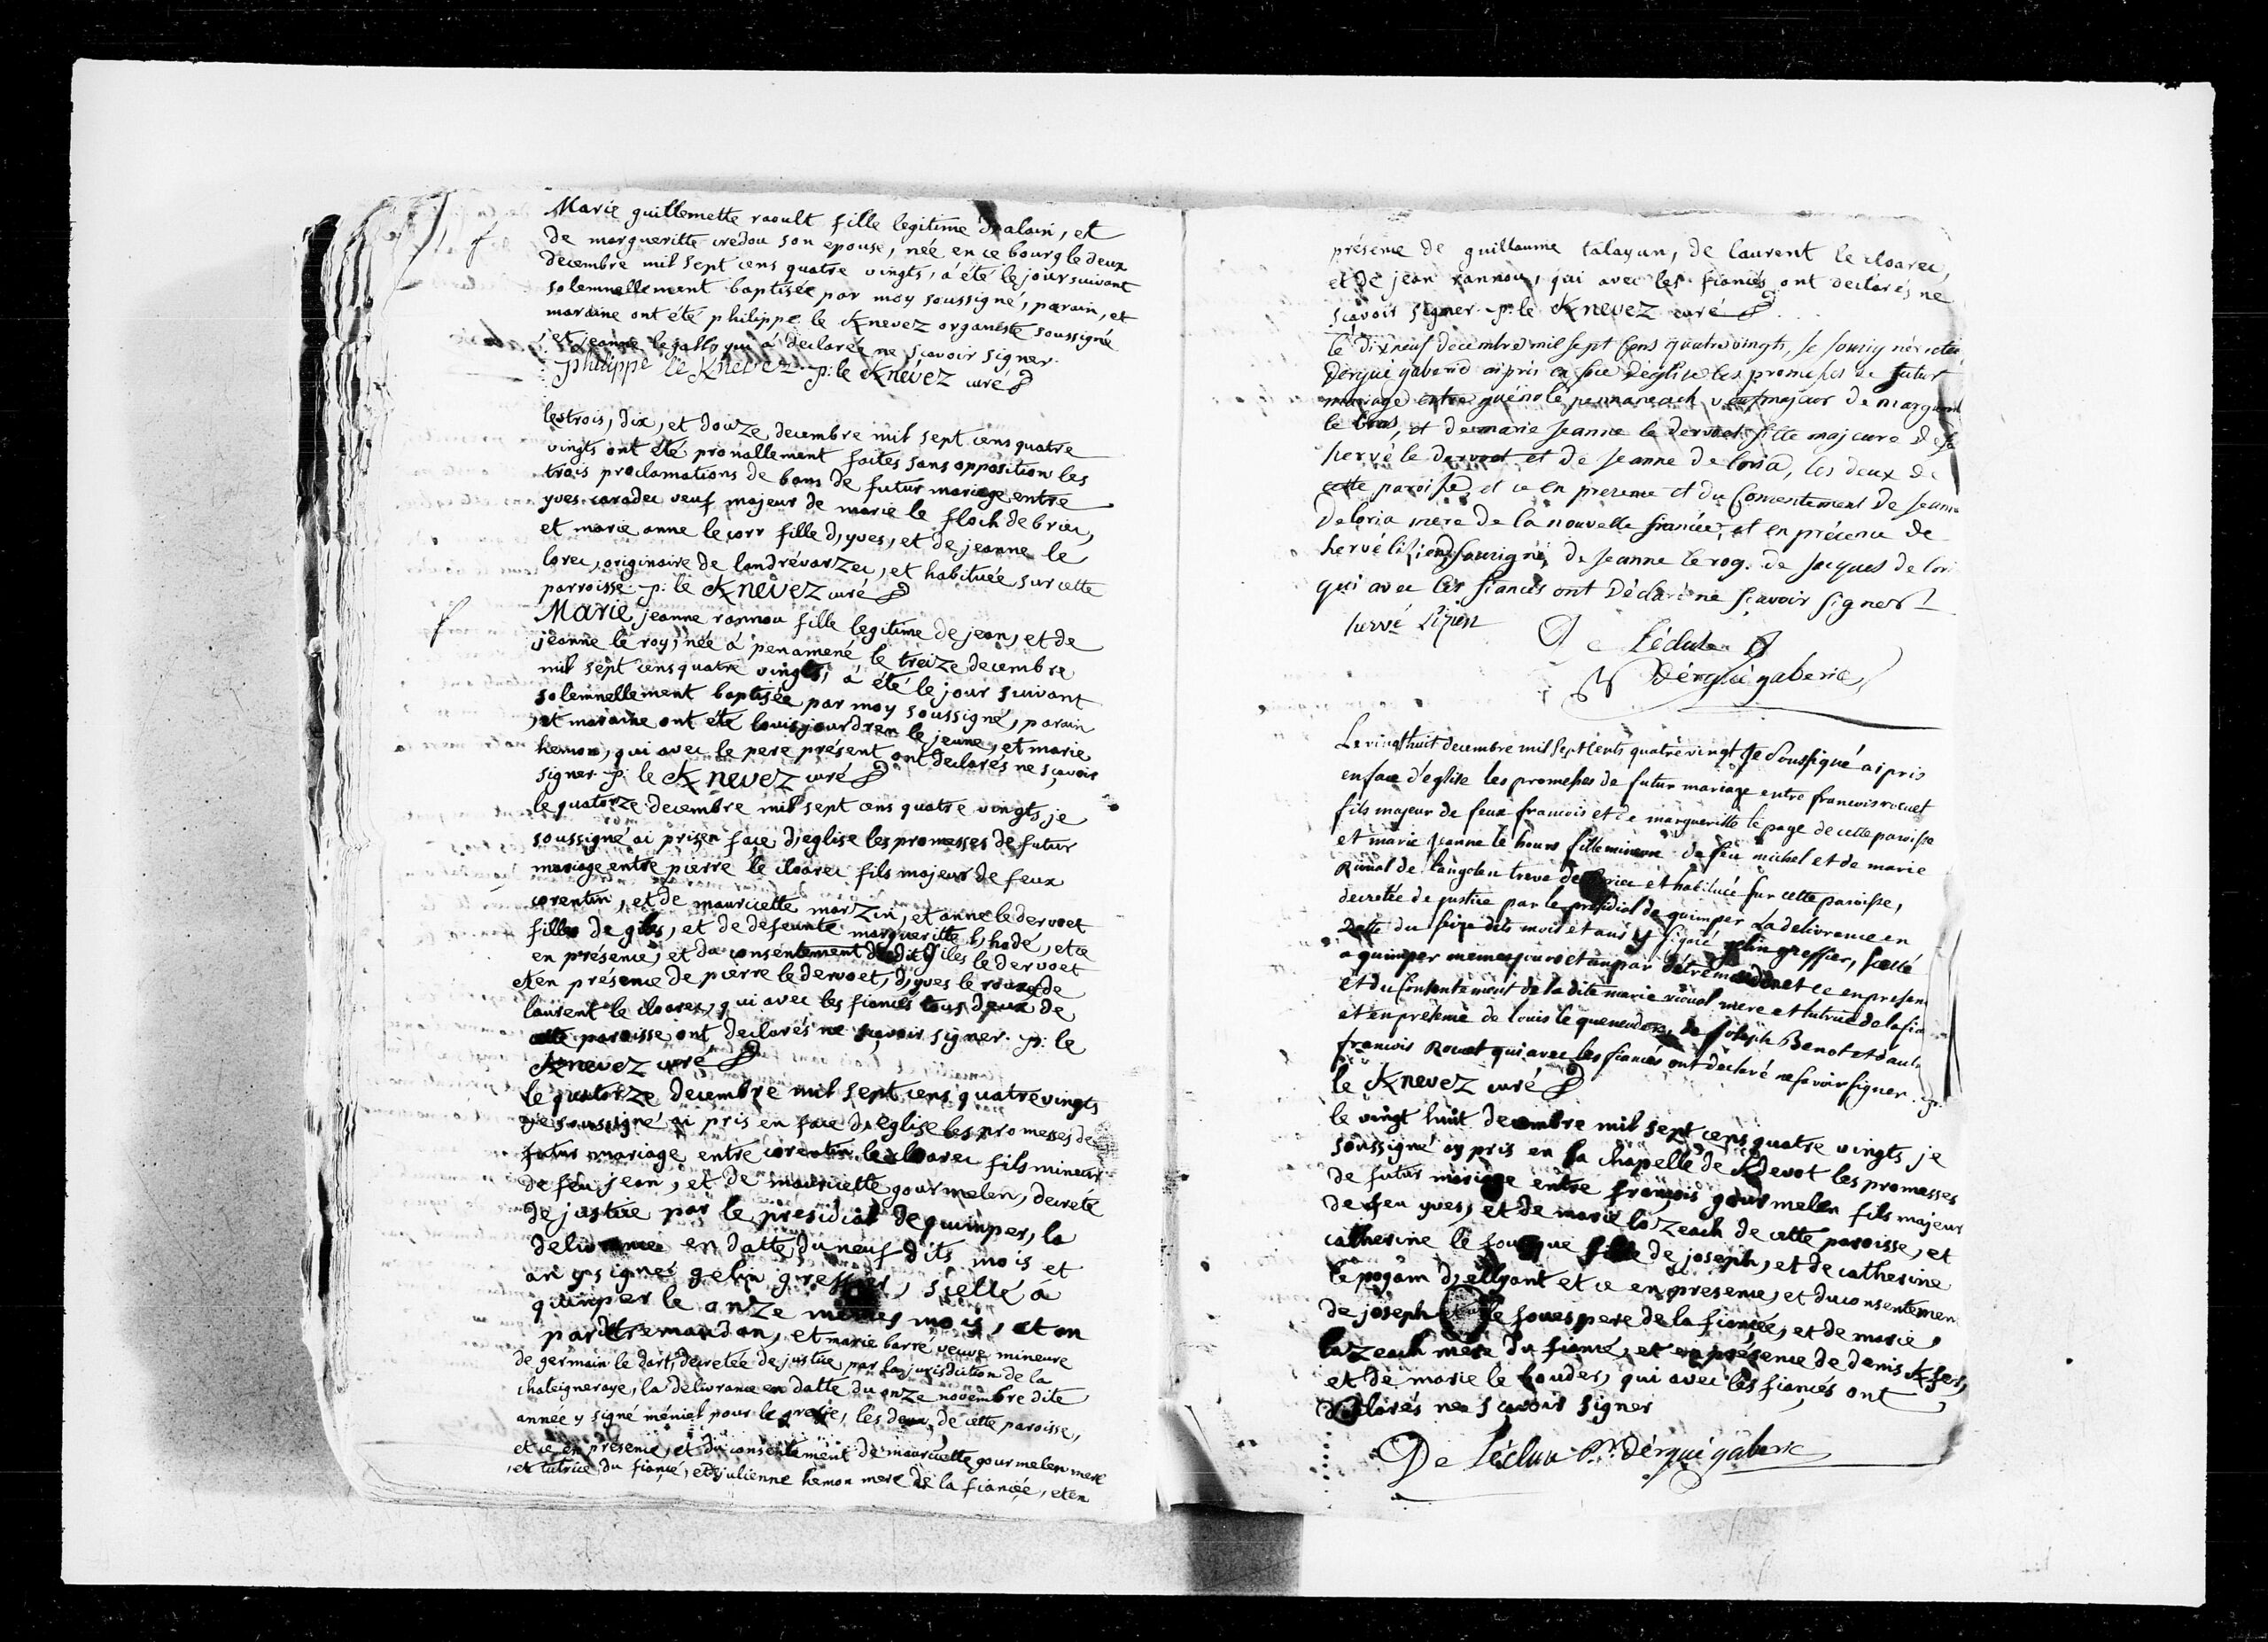 Marie guillemette raoult fille legitime d'alain, et
de margueritte credou son epouse, née en ce bourg le deux
decembre mil sept cens quatre vingts, a été le jour suivant
solemnellement baptisée par moy soussigné, parain, et
maraine ont été philippe le Knevez organiste soussigné
et jeanne le gall, qui a declarée ne scavoir signer.
philippe le Knevez p: le Knevez curé
f
les trois, dix, et douze decembre mil sept cens quatre
vingts ont été pronallement faites sans opposition les
trois proclamations de bans de futur mariage entre
yves caradec veuf majeur de marie le floch de briec,
et marie anne le corr fille d'yves, et de jeanne le
lorec, originaire de landrévarzec, et habituée sur cette
parroisse. p: le Knevez curé
Marie jeanne rannou fille legitime de jean, et de
f
jeanne le roy, née á penamené le treize decembre
mil sept cens quatre vingts, a été le jour suivant
solemnellement baptisée par moy soussigné, parain
et maraine ont été louis jourdren le jeune, et marie
hemon, qui avec le pere présent ont declarés ne scavoir
signer. p: le Knevez curé
le quatorze decembre mil sept cens quatre vingts, je
soussigné ai pris en face d'eglise les promesses de futur
mariage entre pierre le cloarec fils majeur de feux
corentin, et de mauricette marzin, et anne le dervoet
fille de giles, et de defeunte margueritte l'hadé, et ce
en présence, et du consentement dudit Giles le dervoet
et en présence de pierre le dervoet, d'yves le rouxe de
laurent le cloarec, qui avec les fiancés tous deux de
cette paroisse ont declarés ne scavoir signer. p: le
Knevez curé
le quatorze decembre mil sept cens quatre vingts
je soussigné ai pris en face d'eglise les promesses de
futur mariage entre corentin le cloarec fils mineur
de feu jean, et de mauricette gourmelen, decreté
de justice par le presidial de quimper, la
delivrance en datte du neuf dits mois et
an y signé gelin greffier, scellé á
quimper le onze mêmes mois, et an
par détremaudan, et marie barré veuve mineure
de germain le dart, decretée de justice par la jurisdiction de la
chateigneraye, la delivrance en datte du onze novembre dite
année y signé méniel pour le grefie, les deux de cette paroisse,
et ce en présence, et du consentement de mauricette gourmelen mere
et tutrice du fiancé, et de julienne hemon mere de la fiancée, et en
présence de guillaume talayan, de laurent le cloarec,
et de jean rannou, qui avec les fiancés ont declarés ne
scavoir signer. p: le Knevez curé
le dixneuf decembre mil sept cens quatrevingts, je soussigné recteur
dergué gaberic ai pris en face d'eglise les promesses de futur
mariage entre guénolé pennaneach veuf majeur de marguerit
le bras, et de marie jeanne le dervoet fille majeure de feu
hervé le dervoet et de jeanne de loria, les deux de
cette paroisse, et ce en presence et du consentement de jeanne
deloria mere de la nouvelle fiancée, et en présence de
hervé lizien soussigné, de jeanne le rog. de jacques de lori
qui avec les fiancés ont déclaré ne scavoir signer
hervé Lizien
De Lécluse
dérgué gaberic
Le vingthuit decembre mil sept cents quatre vingt je soussigné ai pris
en face d'eglise les promesses de futur mariage entre francois rocuet
fils majeur de feux francois et de margueritte le page de cette paroisse
et marie jeanne le hours fille mineure de feu michel et de marie
Riwal de langolen treve de briec et habituée sur cette paroisse,
decretée de justice par le présidial de quimper La delivrance en
datte du seize dits mois et an y signé gelin greffier, scellé
a quimper memes jours et an par détremaudan et ce en presen
et du consentement de la dite marie riwal mere et tutrice de la fia
et en présence de louis le queneudec, de joseph Benot et d'aut
francois Rocuet qui avec les fiancés ont declaré ne scavoir signer. p.
le Knevez curé
le vingt huit decembre mil sept cens quatre vingts je
soussigné ay pris en la chapelle de Kdevot les promesses
de futur mariage entre françois gourmelen fils majeur
de feu yves, et de marie lazeach de cette paroisse, et
catherine le fouesque fille de joseph, et de catherine
le pogam d'ellyant et ce en presence, et du consentemen
de joseph le foues pere de la fiancée, et de marie
lazeach mere du fiancé, et en présence de denis Kfers,
et de marie le bouder, qui avec les fiancés ont
declarés ne scavoir signer
De Lécluse r.r dérgué gaberic